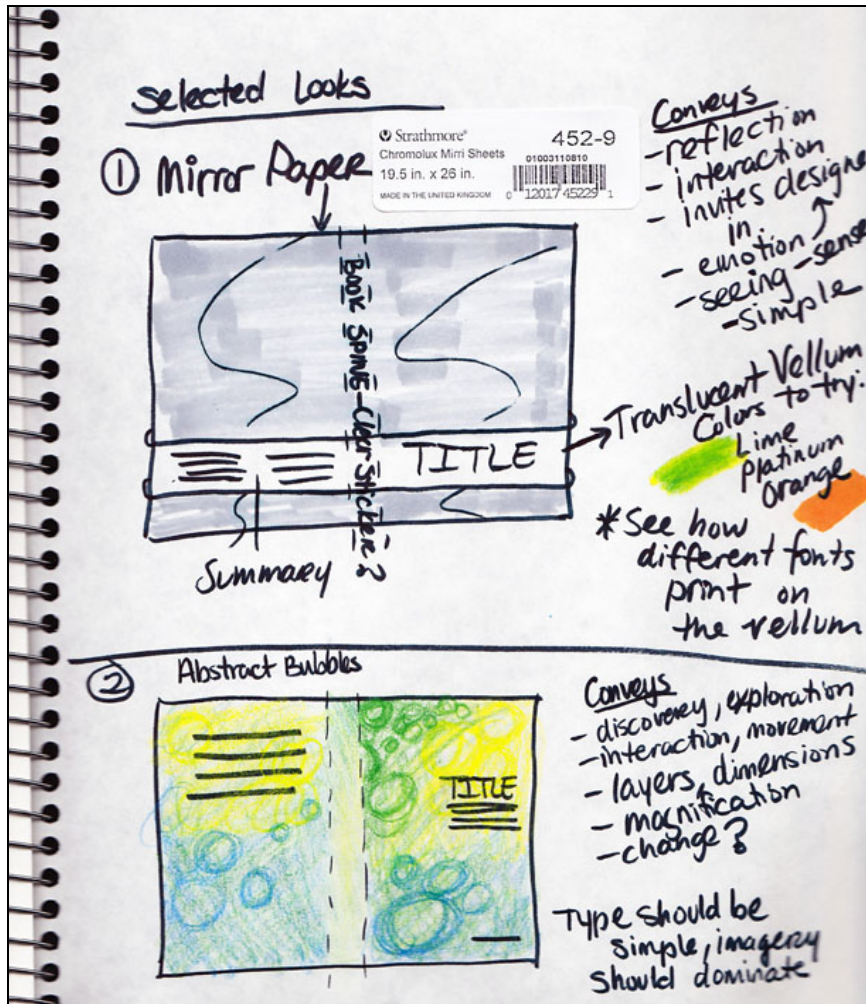 selected Looks
① Mirror Paper
Strathmore®
Chromolux Mirri Sheets
19.5 in. x 26 in.
MADE IN THE UNITED KINGDOM
452-9
01003110810
0 12017 45229 1
Conveys
-reflection
- interaction
- invites designer
in
- emotion
-seeing -sense
-simple
Book Spine-Clear Sticker?
TITLE
Summary
Translucent Vellum
Colors to try:
Lime
Platinum
Orange
*See how
different fonts
print on
the vellum
② Abstract Bubbles
TITLE
Conveys
- discovery, exploration
-interaction, movement
- layers, dimensions
- magnification
-change?
Type should be
simple, imagery
should dominate